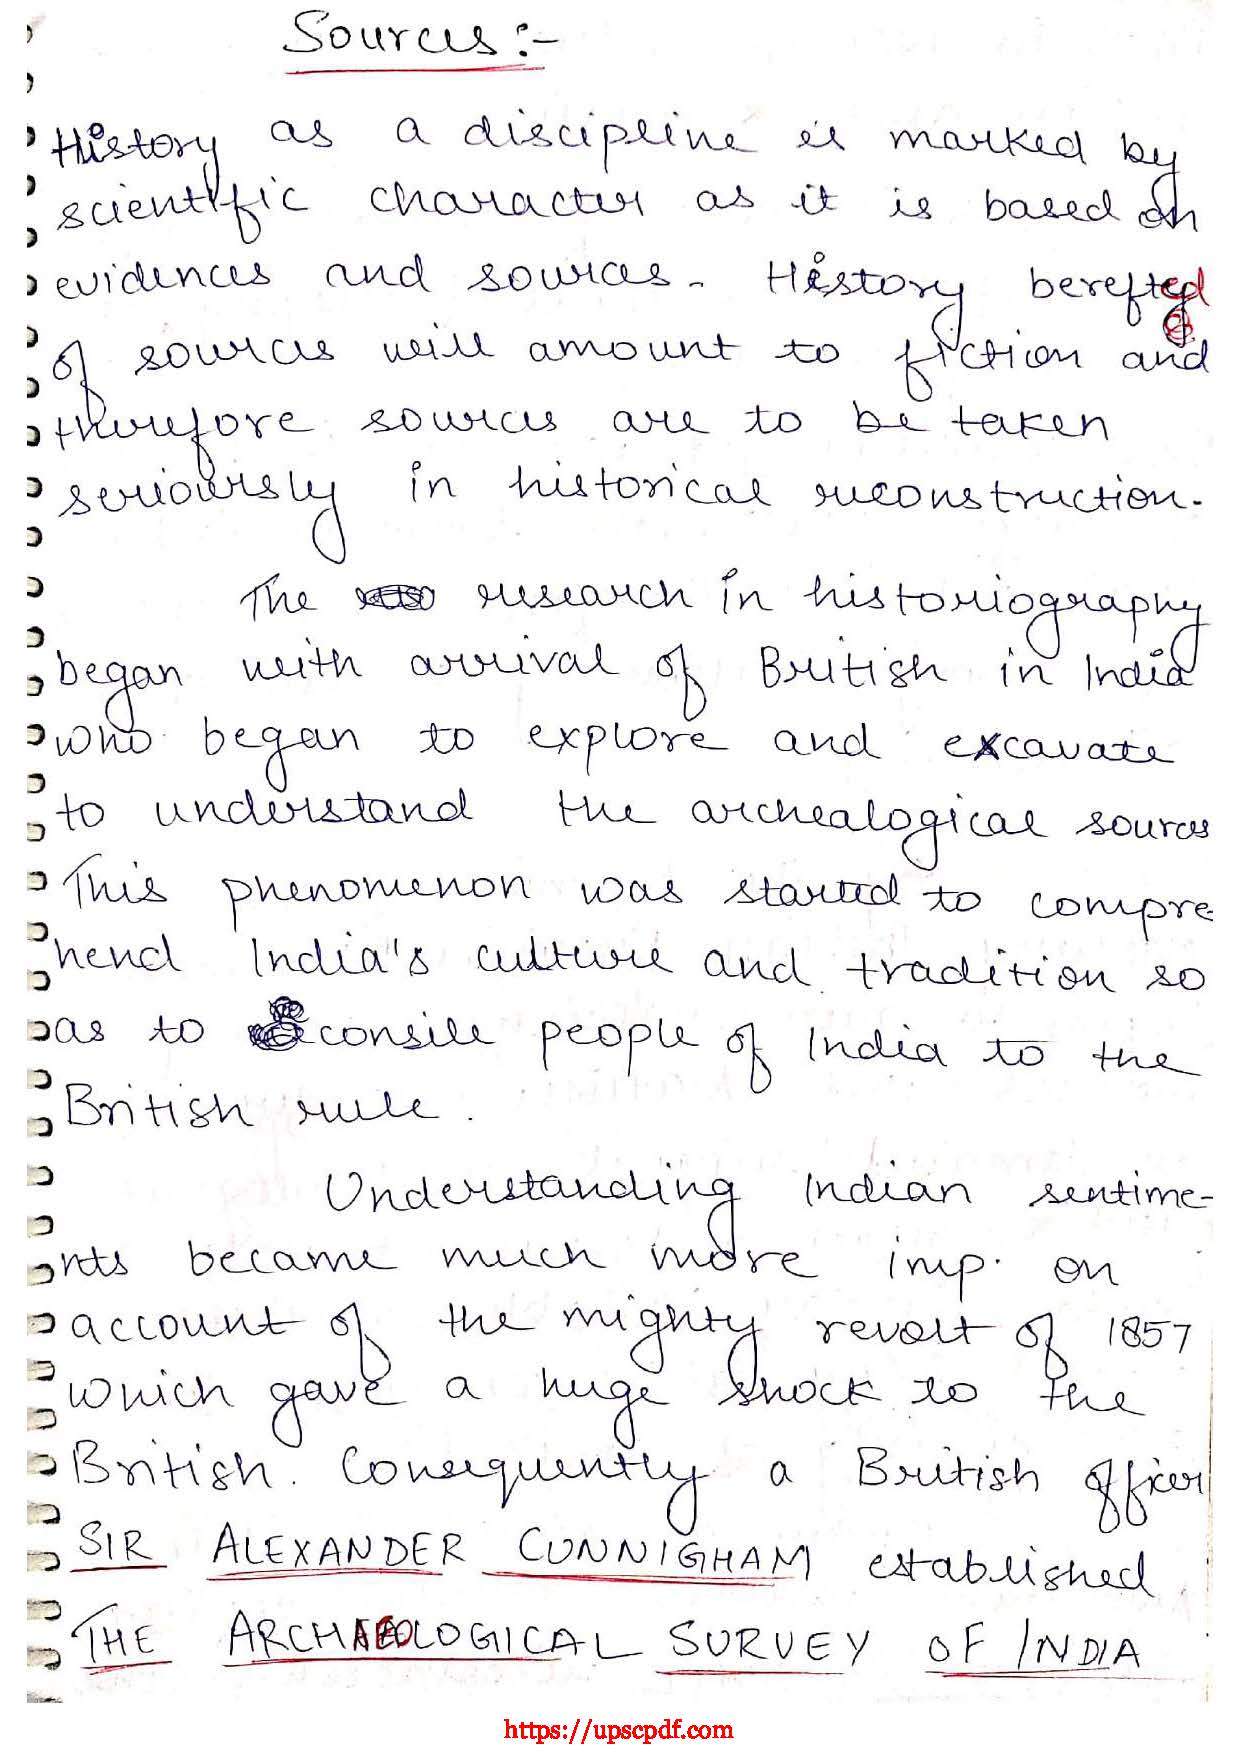 Sources:-
History as a discipline is marked by
scientific character as it is based on
evidences and sources. History berefted
of sources will amount to fiction and
therefore sources are to be taken
seriously in historical reconstruction.
The research in historiography
began with arrival of British in India
who began to explore and excavate
to understand the archealogical sources
This phenomenon was started to compre-
hend India's culture and tradition so
as to consile people of India to the
British rule.
Understanding Indian sentime-
nts became much more imp. on
account of the mighty revolt of 1857
which gave a huge shock to the
British. Consequently a British officer
SIR ALEXANDER CUNNIGHAM established
THE ARCHAEOLOGICAL SURVEY OF INDIA
https://upscpdf.com